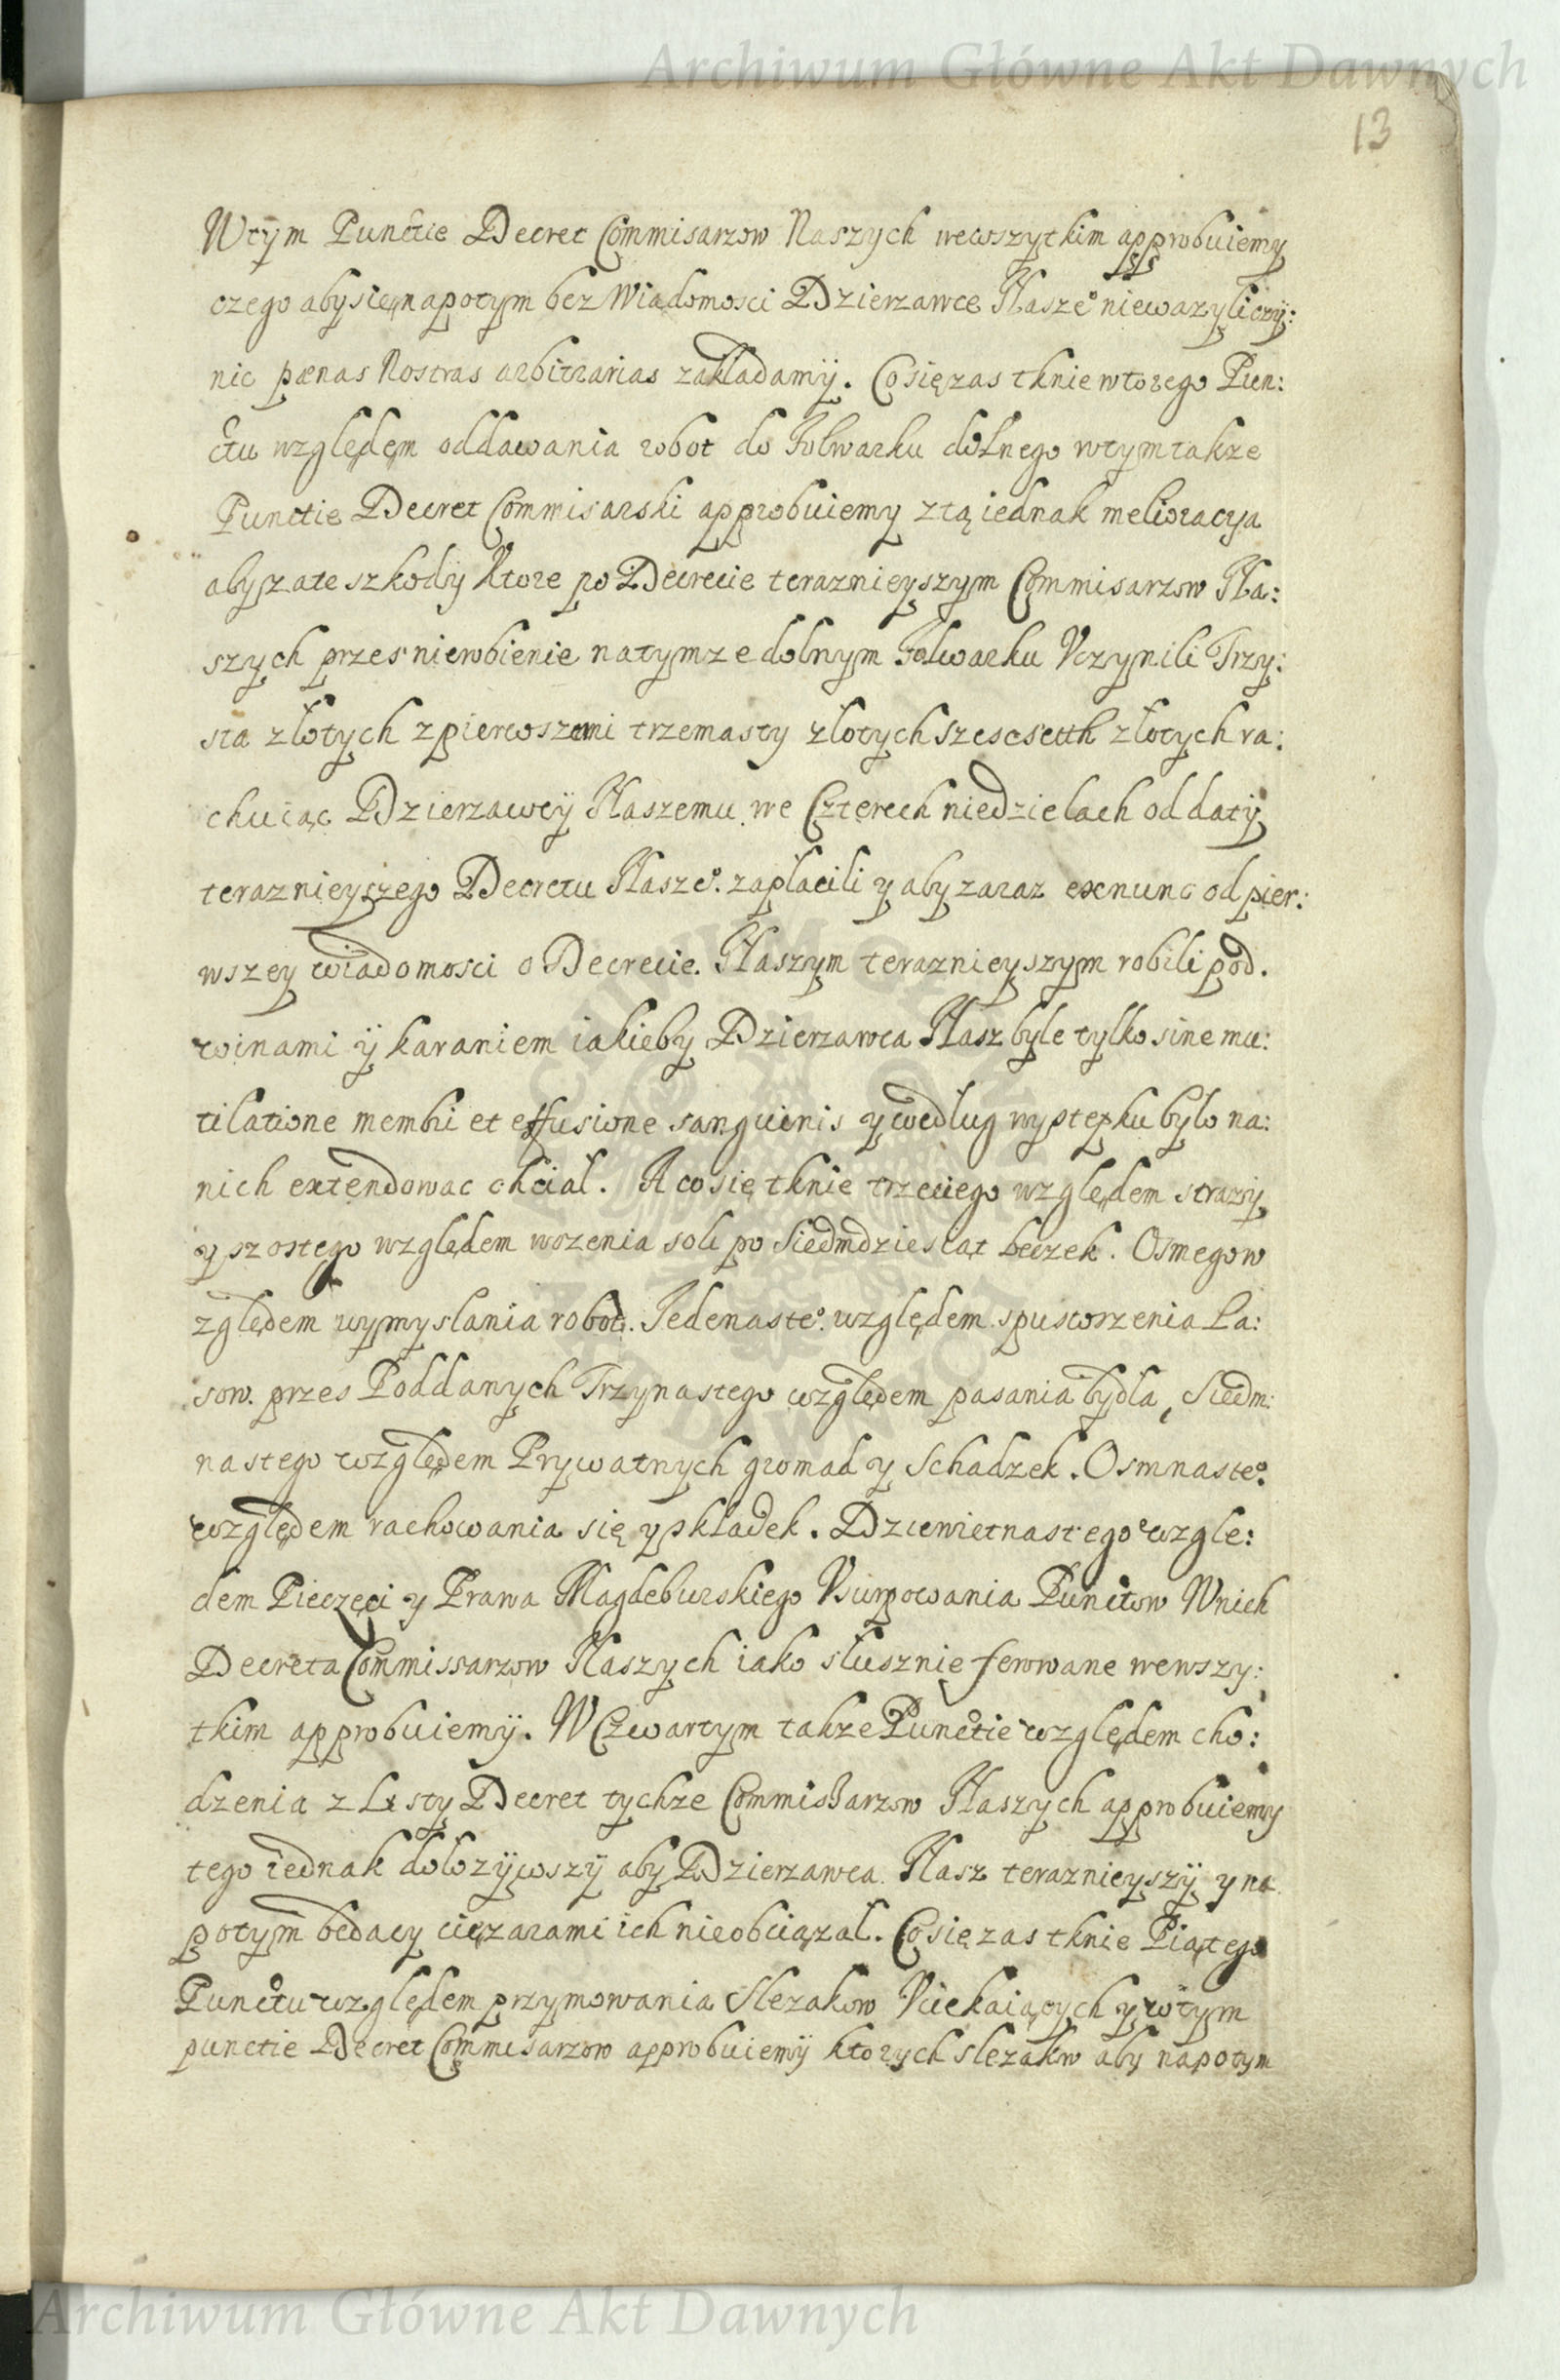 Archiwum Główne Akt Dawnych
13
Wtym Punctie Decret Commisarzow Naszych wewszytkim approbuiemy
czego abysię napotym bez Wiadomosci Dzierzawce Nasze° niewazyli czÿ:
nic pænas Nostras arbitrarias zakładamÿ. Co się zas tknie wtorego Pun:
ctu względem oddawania robot do Folwarku dolnego wtym takze
Punctie Decret Commisarski approbuiemy ztą iednak melioracya
aby zate szkodÿ Ktore po Decrecie teraznieyszym Commisarzow Na:
szych przes nierobienie natymze dolnym Folwarku Vczynili Trzy:
sta złotych zpierwszemi trzemasty złotych szescseth złotych ra:
chuiąc Dzierzawcÿ Naszemu we Czterech niedzielach od datÿ
teraznieyszego Decretu Nasze°. zapłacili y aby zaraz exnunc od pier:
wszey wiadomosci o Decrecie. Naszym teraznieyszym robili pod.
winami ÿ karaniem iakieby Dzierzawca Nasz byle tylko sine mu:
tilatione membri et effusione sanguinis y według wystepku było na:
nich extendowac chciał. A co się tknie trzeciego względem strazÿ
y szostego względem wozenia soli po Siedmdziesiat beczek. Osmego w
zględem wymyslania robot. Jedenaste°. względem spustoszenia La:
sow. przes Poddanych Trzynastego względem pasania bydła, Siedm:
nastego względem Prywatnych gromad y Schadzek. Osmnaste°.
względem rachowania się y składek. Dziewietnastego wzgle:
dem Pieczęci y Prawa Magdeburskiego Vsurpowania Punctow Wnich
Decreta Commissarzow Naszych iako słusznie ferowane wewszy:
tkim approbuiemÿ. W Czwartym takze Punctie względem cho:
dzenia z Listy Decret tychze Commissarzow Naszych approbuiemy
tego iednak dołozÿwszÿ aby Dzierzawca Nasz teraznieyszÿ y na
potym bedacy cięzarami ich nieobciązał. Co się zas tknie Piątego
Punctu względem przymowania Slezakow Vciekaiących y wtym
punctie Decret Commisarzow approbuiemÿ ktorych slezakow aby napotym
Archiwum Główne Akt Dawnych